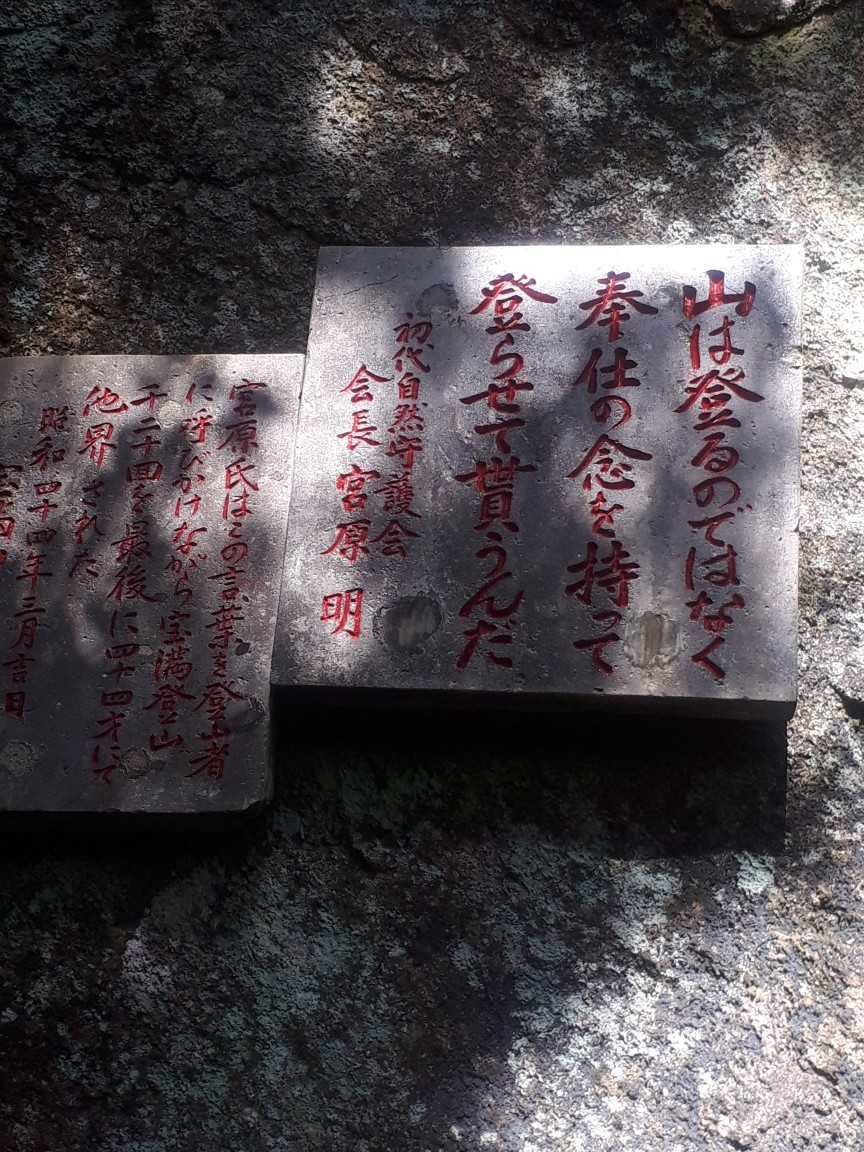 山は登るのではなく
奉仕の念を持って
登らせて貰うんだ
初代自然守護会
会長 宮原 明
宮原氏はこの言葉を登山者
に呼びかけながら宝満登山
千二十回を最後に四十四才にて
他界された
昭和四十四年三月吉日